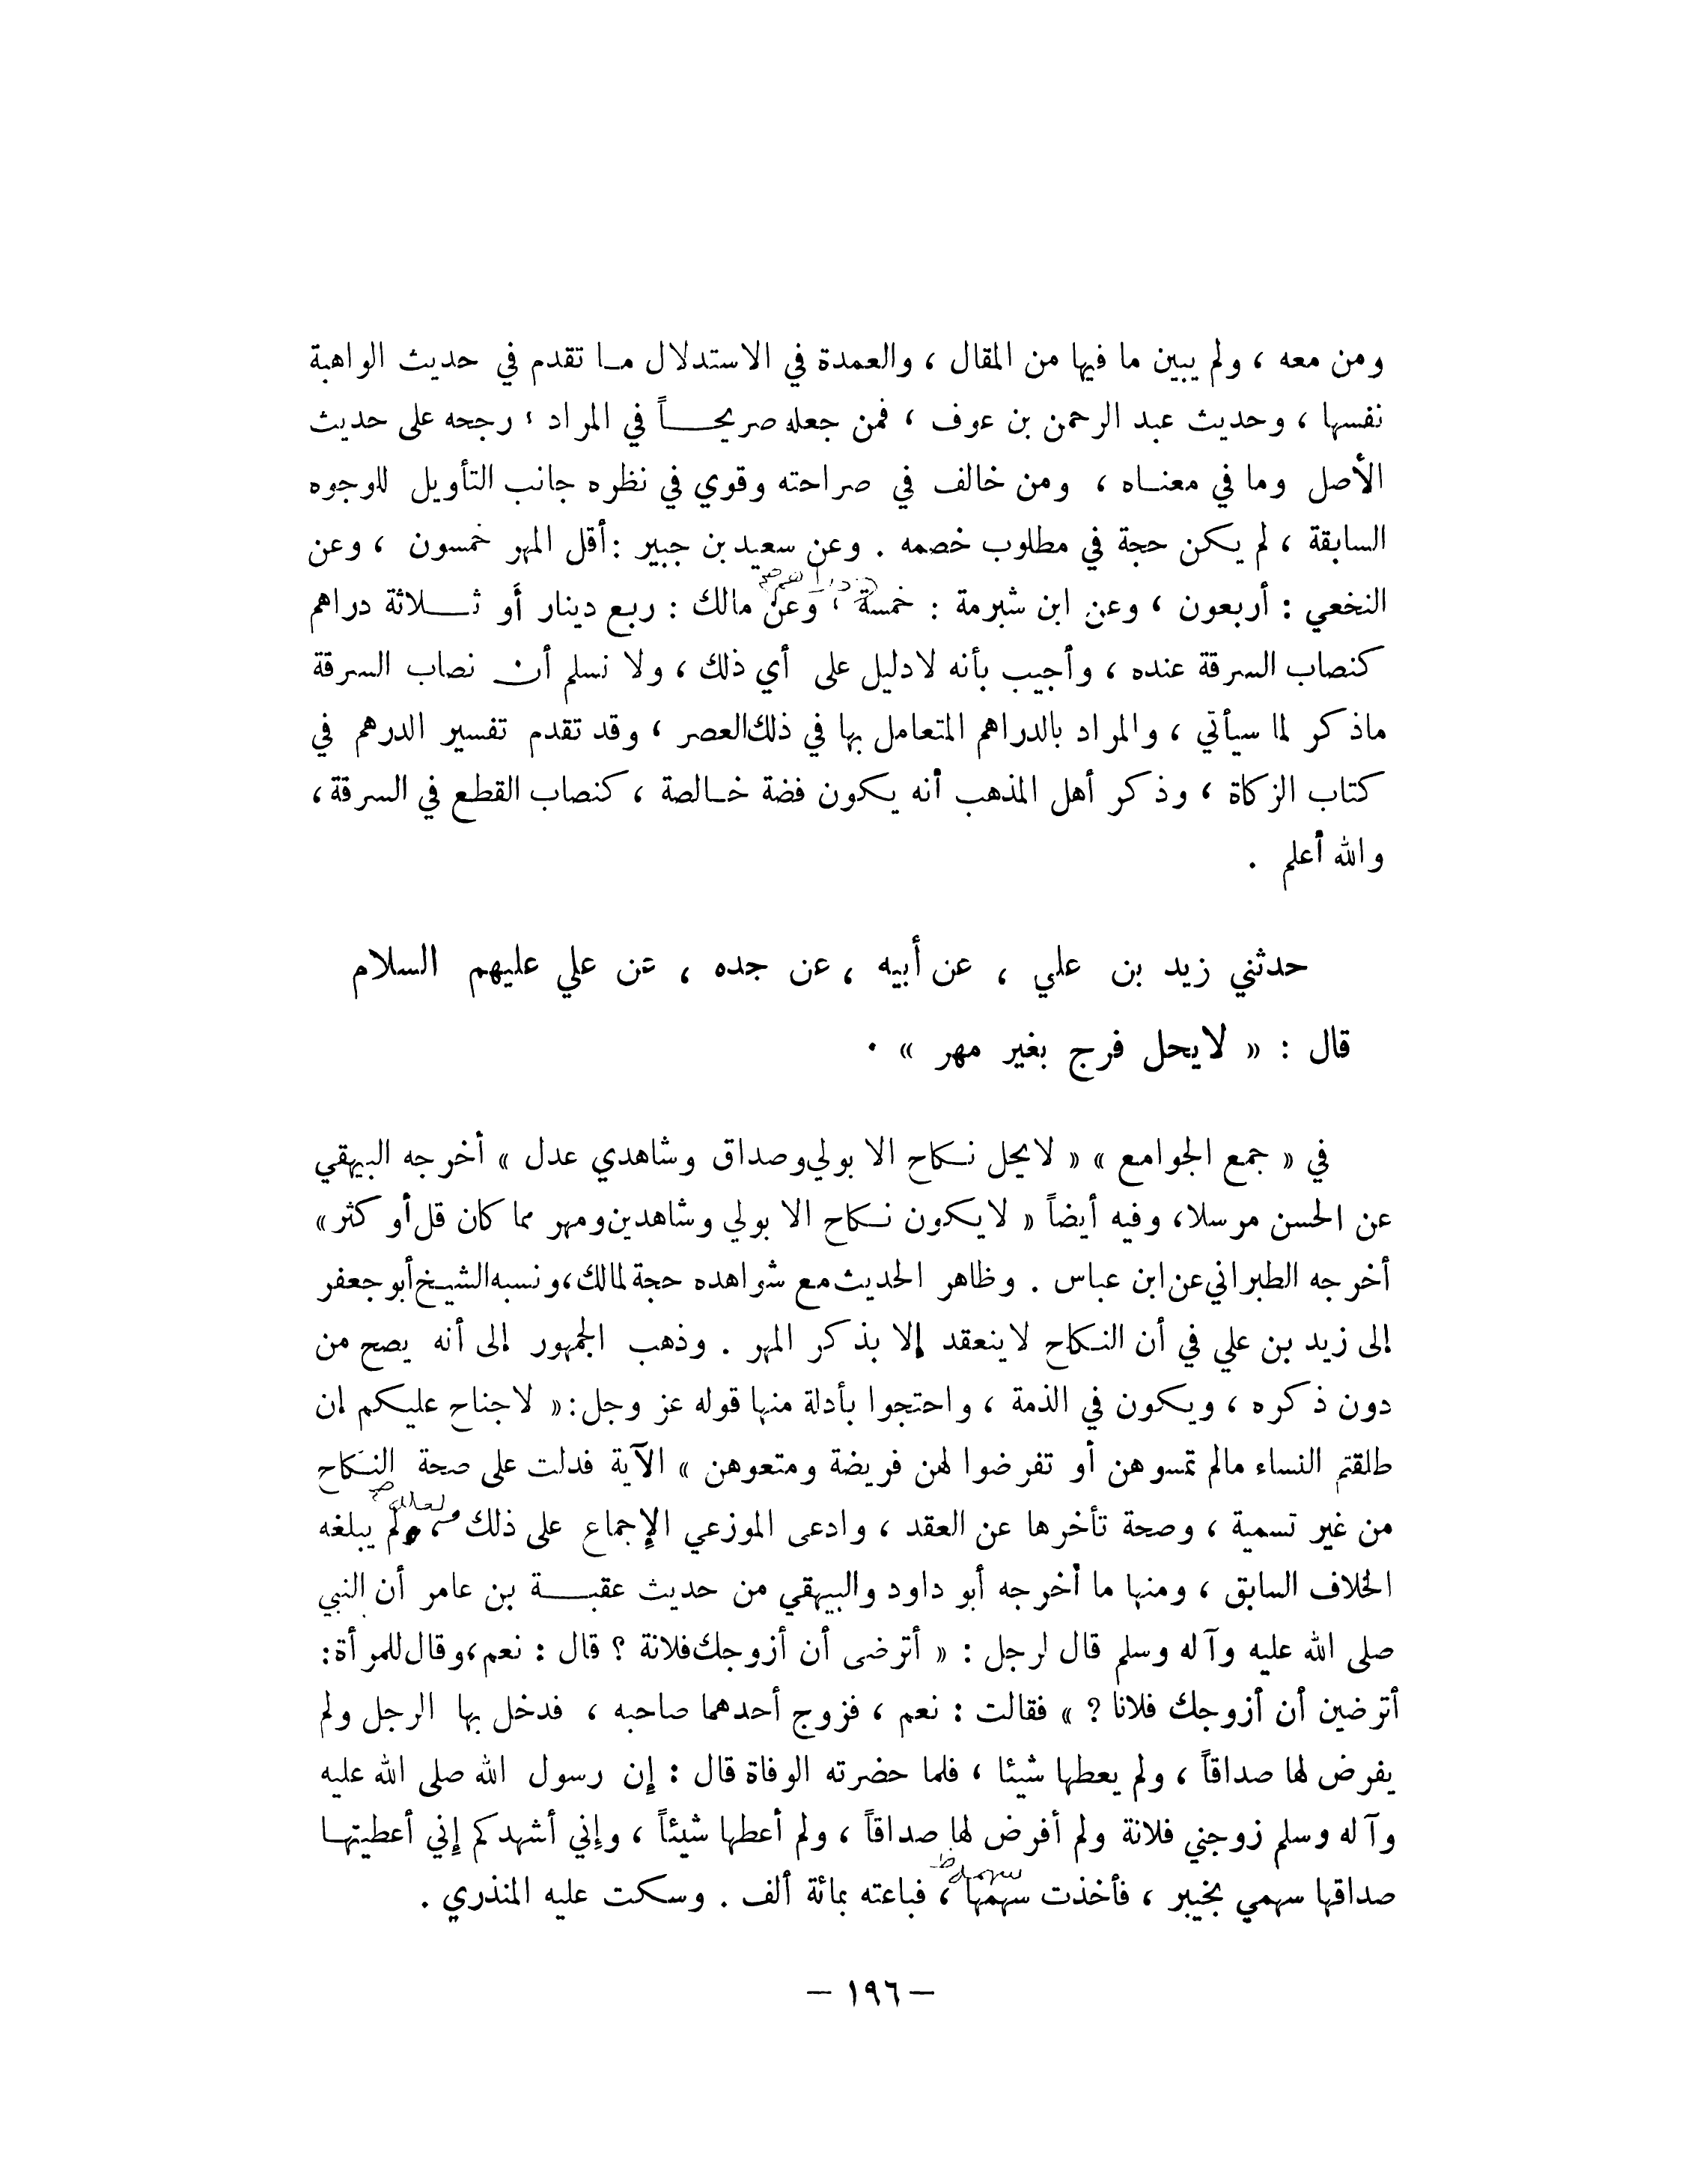 ومن معه ، ولم يبين ما فيها من المقال ، والعمدة في الاستدلال مــا تقدم في حديث الواهبة
نفسها ، وحديث عبد الرحمن بن عوف ، فمن جعله صريحـــاً في المراد ، رجحه على حديث
الأصل وما في معنــاه ، ومن خالف في صراحته وقوي في نظره جانب التأويل للوجوه
السابقة ، لم يكن حجة في مطلوب خصمه . وعن سعيد بن جبير : أقل المهر خمسون ، وعن
النخعي : أربعون ، وعن ابن شبرمة : خمسة ، وعن مالك : ربع دينار أو ثـــلاثة دراهم
كنصاب السرقة عنده ، وأجيب بأنه لادليل على أي ذلك ، ولا نسلم أن نصاب السرقة
ماذكر لما سيأتي ، والمراد بالدراهم المتعامل بها في ذلك العصر ، وقد تقدم تفسير الدرهم في
كتاب الزكاة ، وذكر أهل المذهب أنه يكون فضة خــالصة ، كنصاب القطع في السرقة ،
والله أعلم .
حدثني زيد بن علي ، عن أبيه ، عن جده ، عن علي عليهم السلام
قال : « لايحل فرج بغير مهر » .
في « جمع الجوامع » « لايحل نكاح الا بولي وصداق وشاهدي عدل » أخرجه البيهقي
عن الحسن مرسلا ، وفيه أيضاً « لايكون نكاح الا بولي وشاهدين ومهر مما كان قل أو كثر »
أخرجه الطبراني عن ابن عباس . وظاهر الحديث مع شواهده حجة لمالك ، ونسبه الشيخ أبو جعفر
إلى زيد بن علي في أن النكاح لاينعقد إلا بذكر المهر . وذهب الجمهور إلى أنه يصح من
دون ذكره ، ويكون في الذمة ، واحتجوا بأدلة منها قوله عز وجل : « لاجناح عليكم ان
طلقتم النساء مالم تمسوهن أو تفرضوا لهن فريضة ومتعوهن » الآية فدلت على صحة النكاح
من غير تسمية ، وصحة تأخرها عن العقد ، وادعى الموزعي الإجماع على ذلك ، ولم يبلغه
الخلاف السابق ، ومنها ما أخرجه أبو داود والبيهقي من حديث عقبـــة بن عامر أن النبي
صلى الله عليه وآله وسلم قال لرجل : « أترضى أن أزوجك فلانة ؟ قال : نعم ، وقال للمرأة :
أترضين أن أزوجك فلانا ؟ » فقالت : نعم ، فزوج أحدهما صاحبه ، فدخل بها الرجل ولم
يفرض لها صداقاً ، ولم يعطها شيئا ، فلما حضرته الوفاة قال : إن رسول الله صلى الله عليه
وآله وسلم زوجني فلانة ولم أفرض لها صداقاً ، ولم أعطها شيئاً ، وإني أشهدكم إني أعطيتهــا
صداقها سهمي بخيبر ، فأخذت سهمها ، فباعته بمائة ألف . وسكت عليه المنذري .
– ١٩٦ –